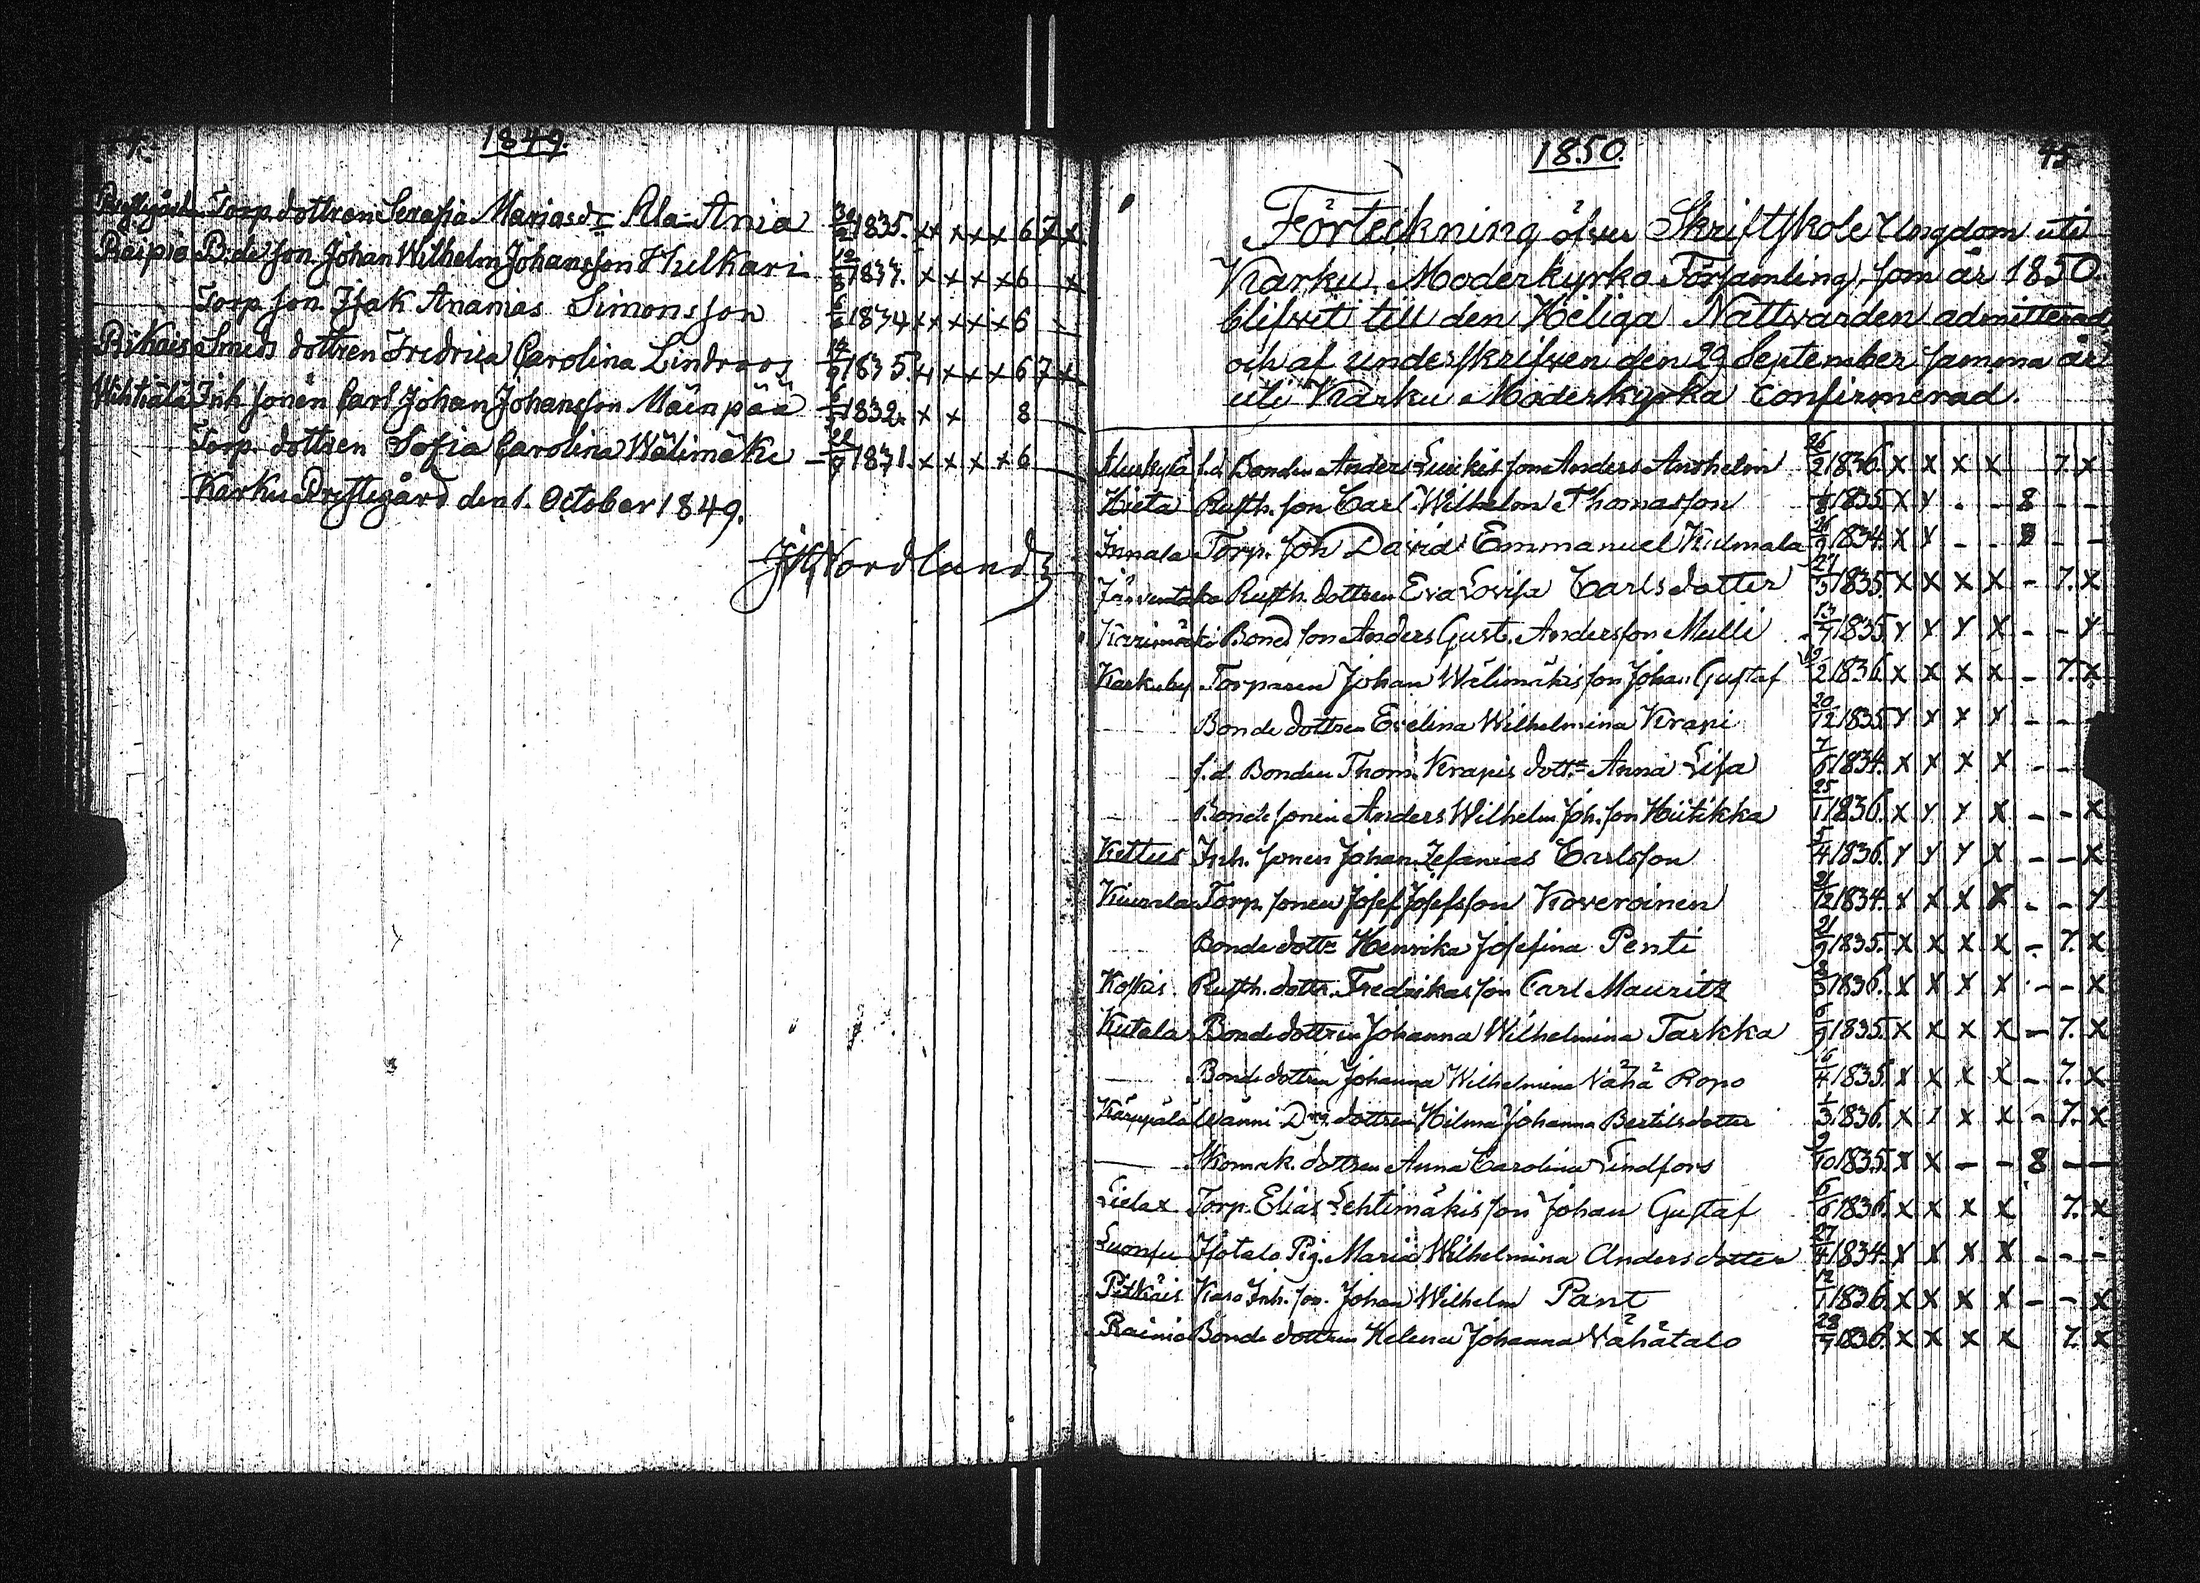 1849.
Torp. dottren Serafia Mariasdr Ala Ania 30/2 1835. x x x x x 6 7 x
Raipio B:de son Johan Wilhelm Johansson Hulkari 12/ 1837. x x x x 6 x
Torp. son Isak Ananias Simonsson 6/6 1834 x x x x x 6
Smeds dottren Fredrica Carolina Lindroos 1835. x x x x 6 7 x
Inh. sonen Carl Johan Johansson Mäinpää 1832. x x 8
Torp. dottren Sofia Carolina Wälimäki 1831. x x x x 6
Karku Prestegård den 1. October 1849.
Nordlund
1850. 45
Förteckning öfver Skriftskole Ungdom uti
Karku Moderkyrko Församling, som år 1850.
blifvit till den Heliga Nattvarden admitterad,
och af underskrifven den 29 September samma år
uti Karku Moderkyrka Confirmerad.
f.d. Bonden Anders son Anders Anshelm 26/2 1836. x x x x 7. x
Hieta Rusth. son Carl Wilhelm Thomasson 1835 x x - - 8 - -
Innala Torp. son David Emmanuel Kulmala 1834. x x - - 8 - -
Rusth. dottren Eva Lovisa Carlsdotter 1835 x x x x - 7. x
Karimäki Bond son Anders Gust. Andersson Mulli 13/ 1835 x x x x - - x
Karkuby Torparen Johan Wälimäkis son Johan Gustaf 19/2 1836. x x x x - 7. x
Bonde dottren Evelina Wilhelmina Krapi 20/12 1835 x x x x - -
f.d. Bonden Thom. Krapis dottr Anna Lisa 1834. x x x x - -
Bonde sonen Anders Wilhelm Joh. son Hiitikka 25/1 1836. x x x x - - x
Kettus Inh. sonen Johan Zefanias Carlsson 5/4 1836. x x x x - - x
Torp. sonen Josef Josefsson Koveroinen 21/12 1834. x x x x - - x
Bonde dottr Henrika Josefina Penti 21/9 1835. x x x x - 7. x
Koskis Rusth. dottr. Fredrikas son Carl Mauritz 1836. x x x x - - x
Kutala Bonde dottren Johanna Wilhelmina Tarkka 6/9 1835. x x x x - 7. x
Bonde dottren Johanna Wilhelmina Vähä Ropo 1835. x x x x - 7. x
Dottren Hilma Johanna Bertilsdotter 1/3 1836. x x x x - 7. x
Skomak. dottren Anna Carolina Lindfors 9/10 1835. x x - - 8 - -
Lielax Torp. Elias Lehtimäkis son Johan Gustaf 6/6 1836. x x x x 7. x
Isotalo Pig. Maria Wilhelmina Andersdotter 27/4 1834. x x x x - - -
Pitkäis Inh. son Johan Wilhelm Pant 12/1 1836. x x x x - - x
Rainio Bonde dottren Helena Johanna Vähätalo 28/ 1836. x x x x 7. x